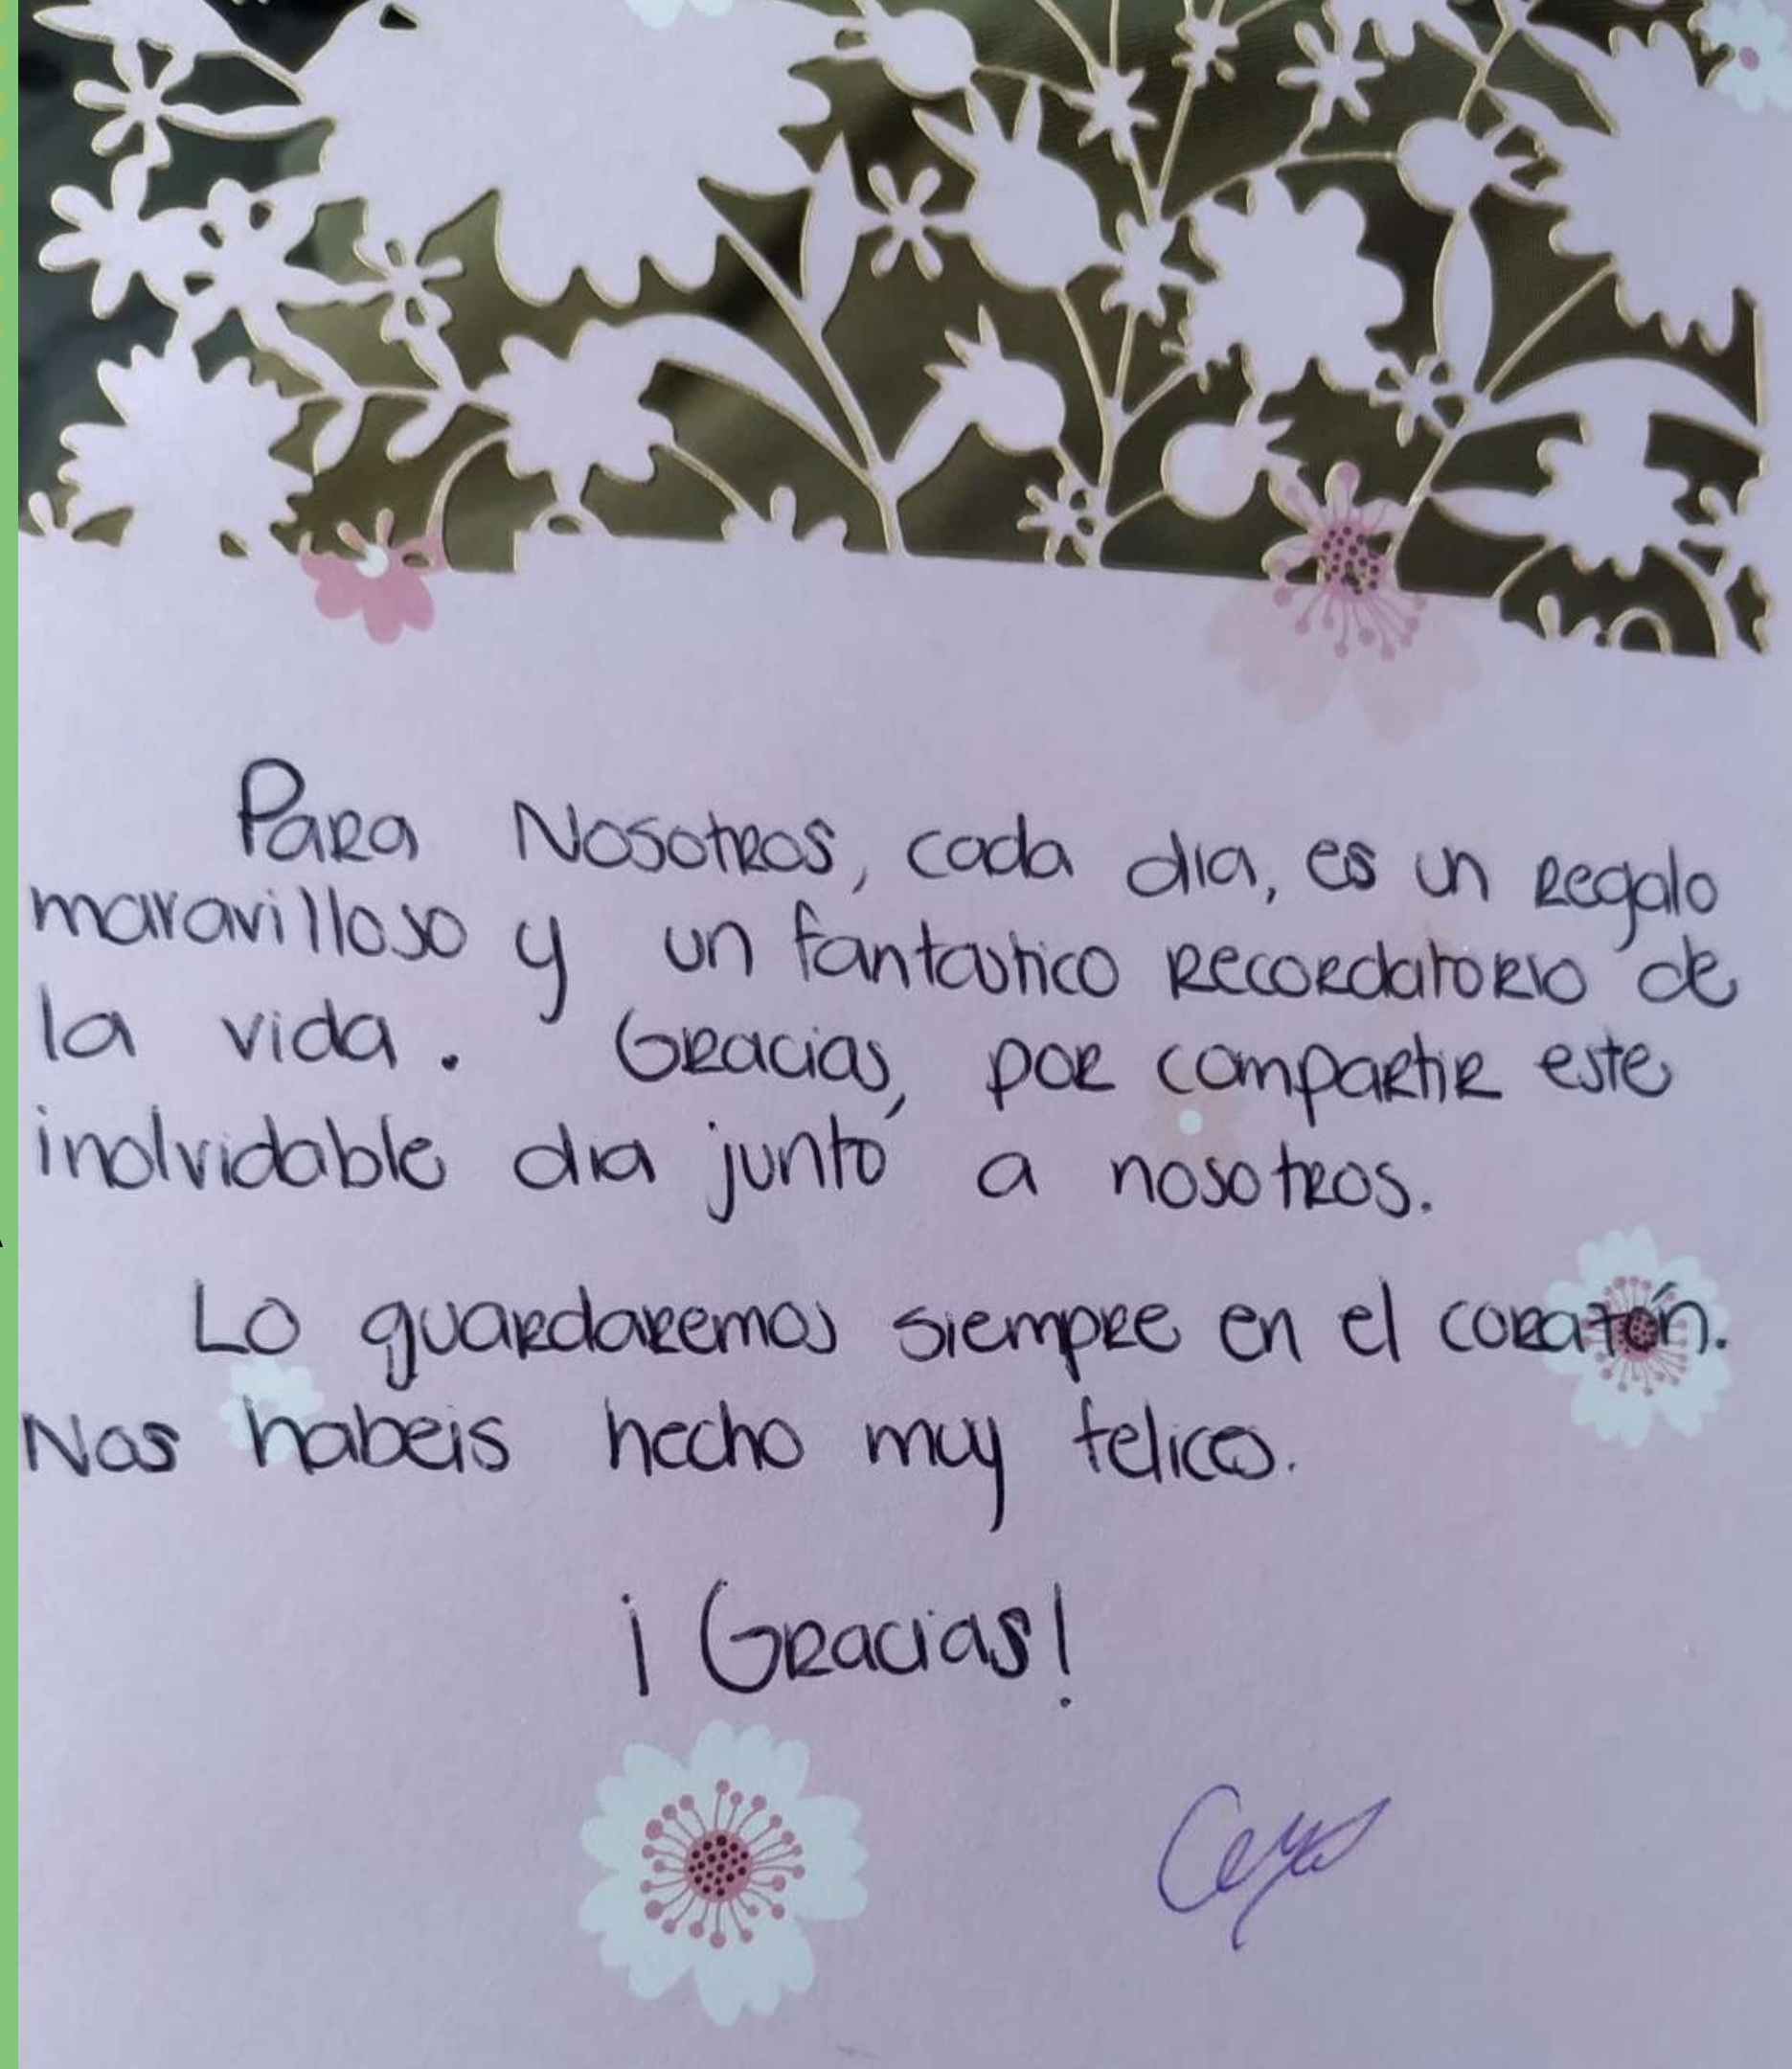 Para Nosotros, cada dia, es un regalo
maravilloso y un fantastico recordatorio de
la vida. Gracias, por compartir este
inolvidable dia junto a nosotros.
Lo guardaremos siempre en el corazón.
Nos habeis hecho muy felices.
¡Gracias!